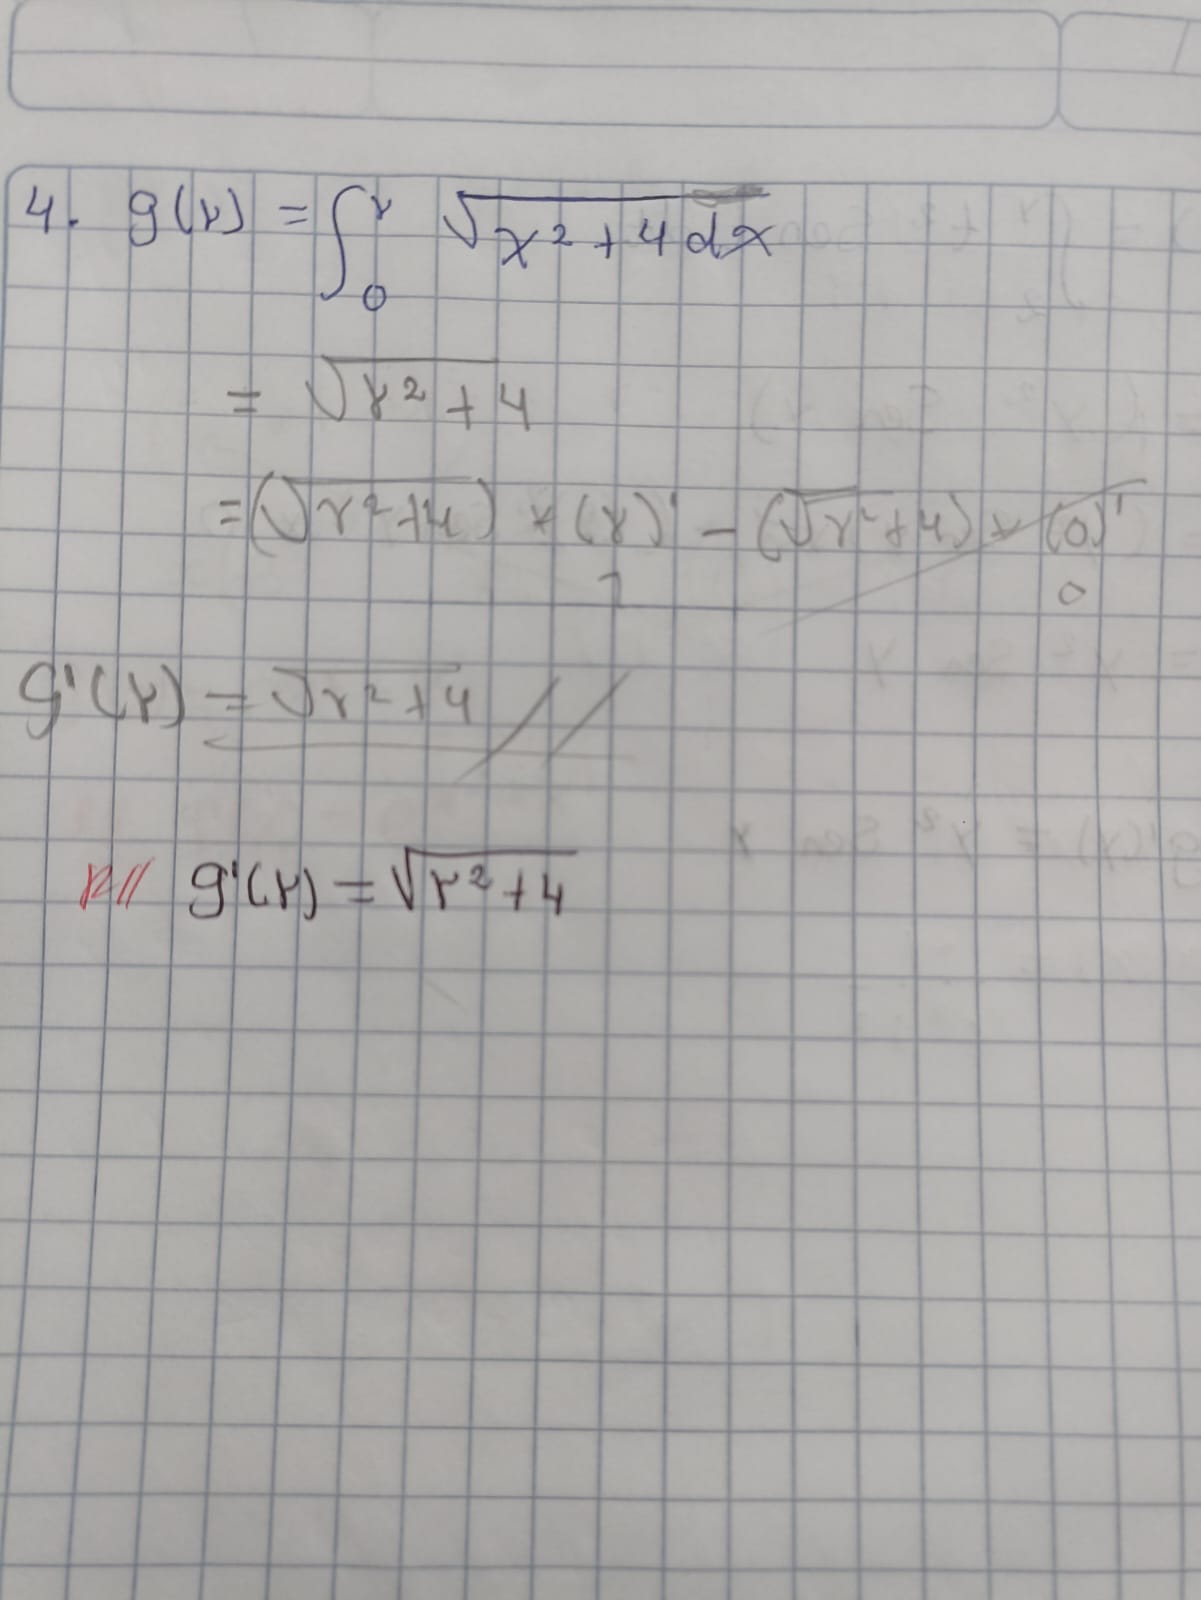 4. g(r) = ∫₀ʳ √(x² + 4) dx
= √(r² + 4)
= (√(r²+4)) * (r)' - (√(r²+4)) * (0)'
1 0
g'(r) = √(r²+4) //
R// g'(r) = √(r²+4)